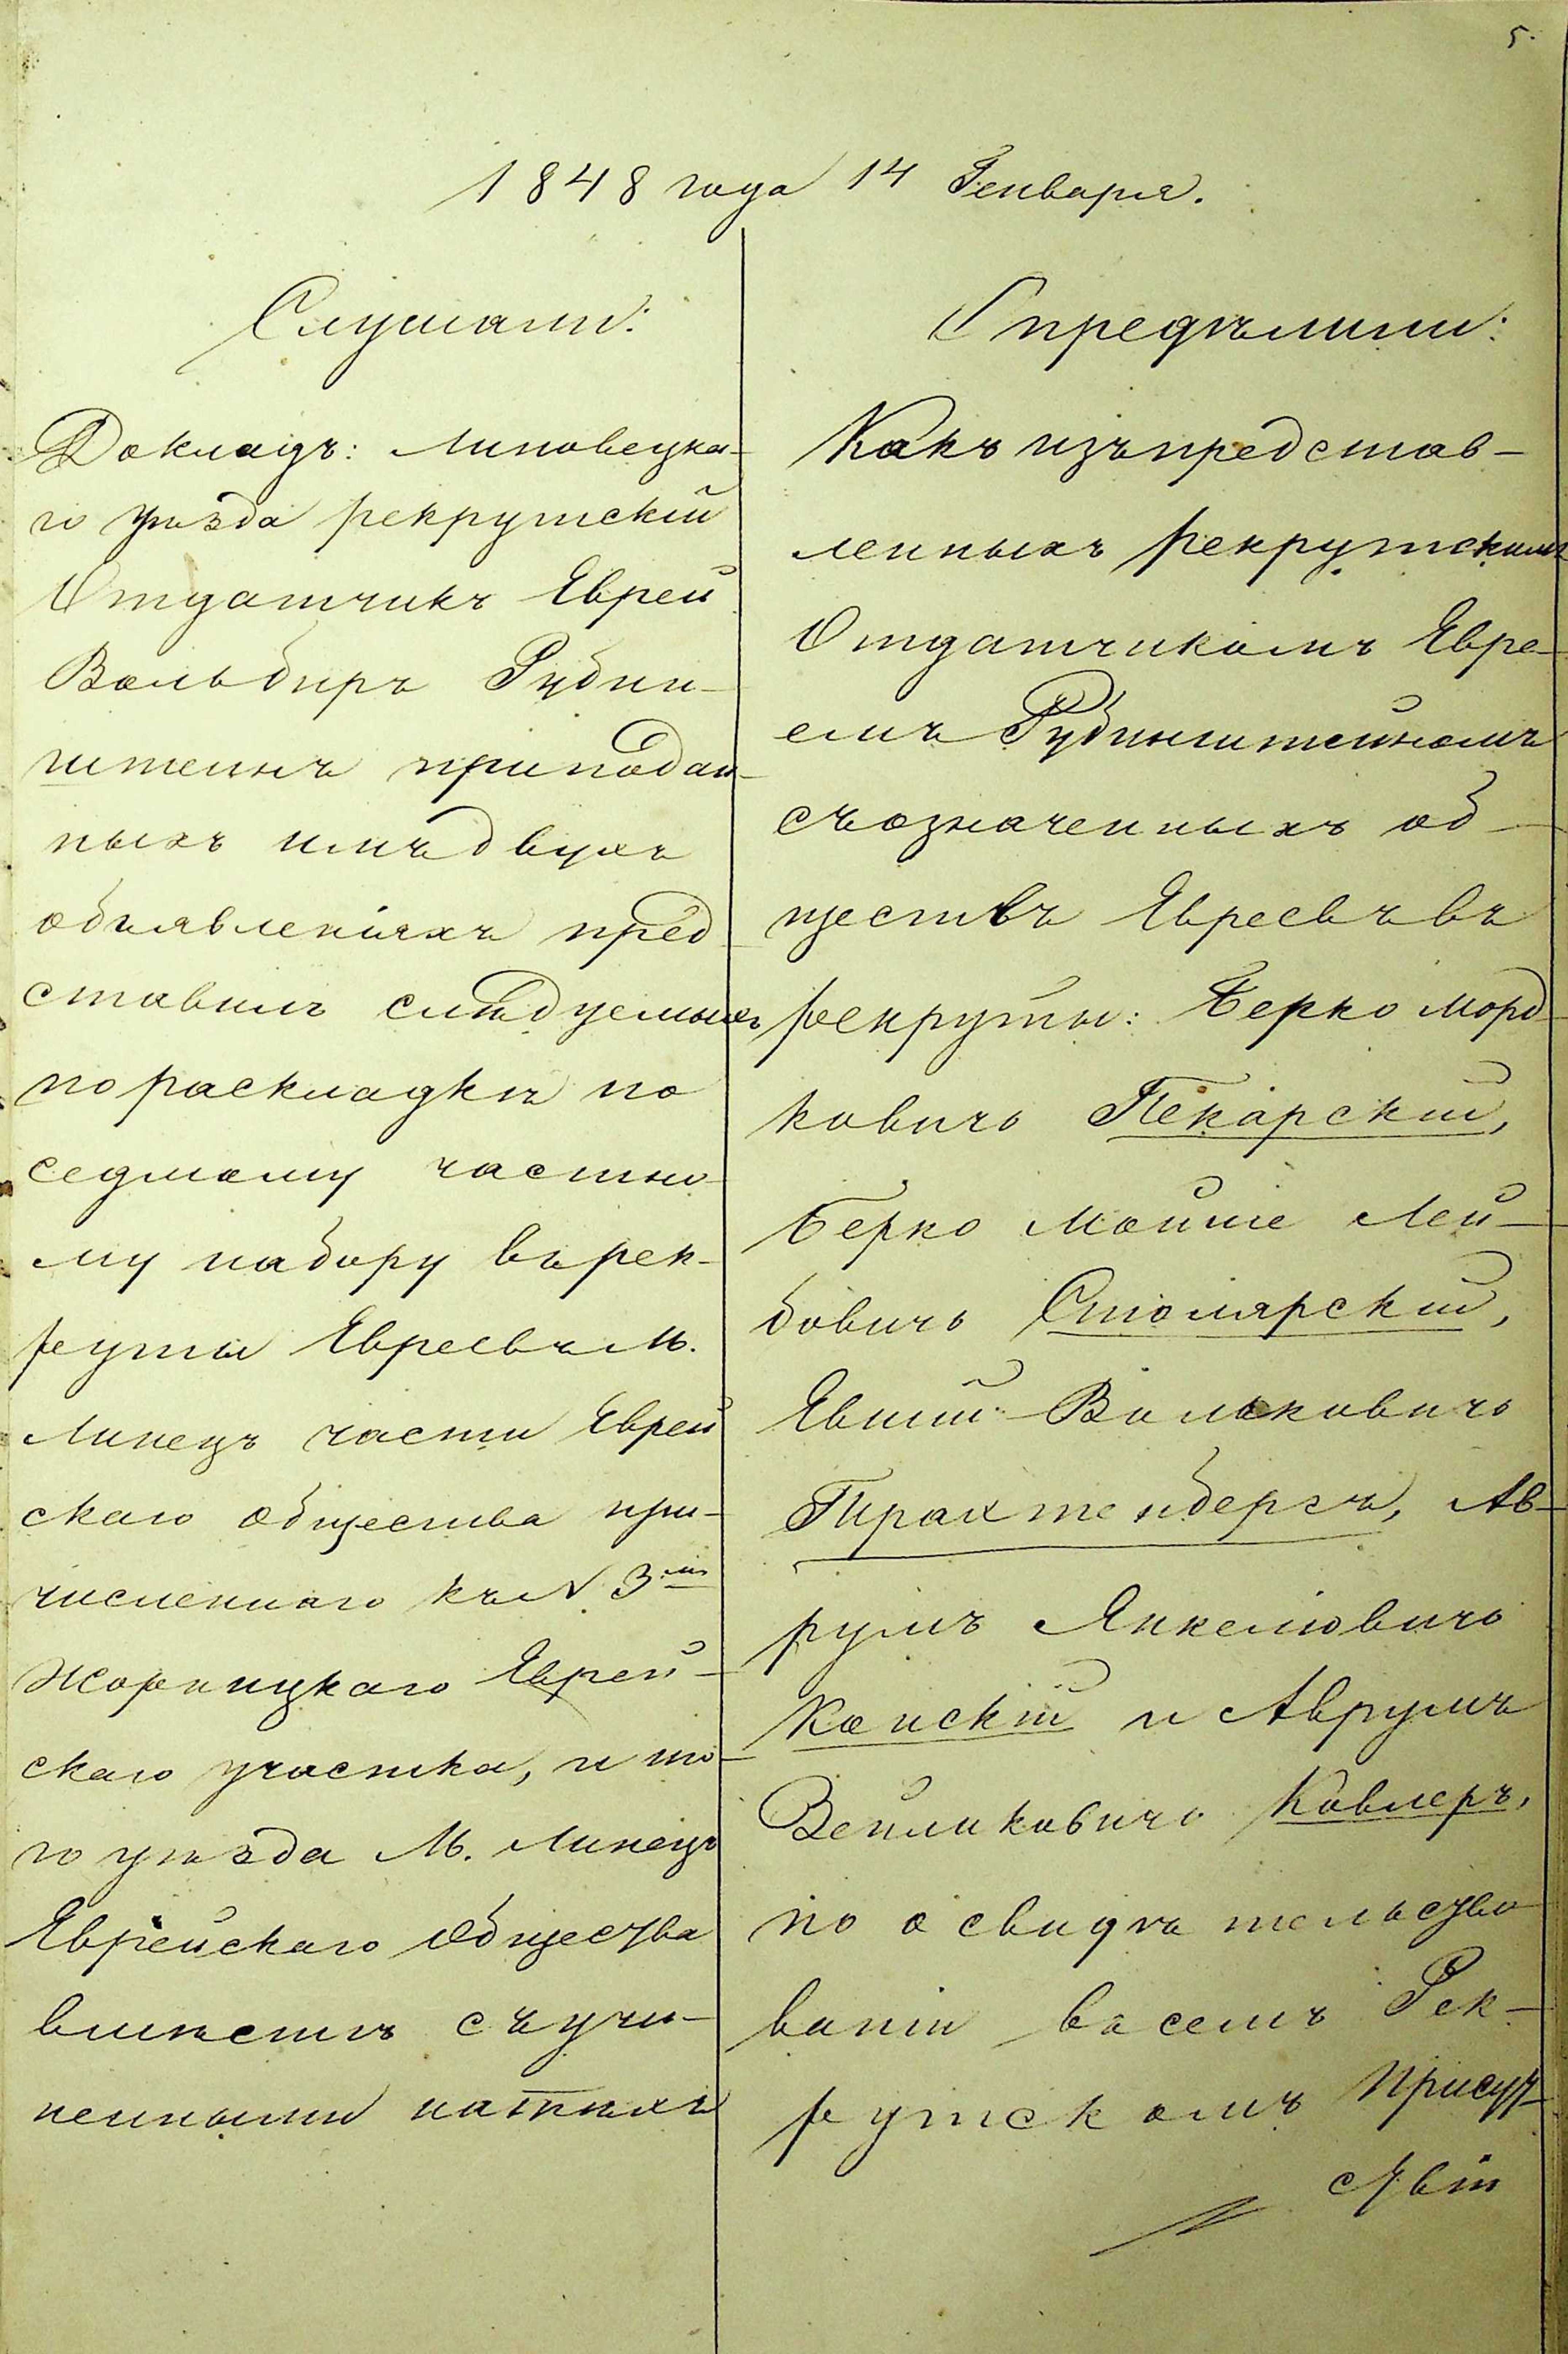 5.
1848 года 14 Генваря.
Слушали:
Докладъ: Липовецка-
го уѣзда рекрутскій
Отдатчикъ Еврей
Вольбиръ Рубин-
штейнъ приподан-
ныхъ имъ двухъ
объявленіяхъ пред
ставилъ слѣдуемыхъ
по раскладкѣ по
седмому частно-
му набору въ рек-
руты Евреевъ М.
Линецъ части Еврей
скаго общества при-
численнаго къ N. 3му
Жорницкаго Еврей-
скаго участка, и то-
го уѣзда М. Линецъ
Еврейскаго Общества
вмѣстѣ съ учи-
ненными на тѣхъ
Опредѣлили:
Какъ изъ представ-
ленныхъ рекрутскимъ
Отдатчикомъ Евре-
емъ Рубинштейномъ
съозначенныхъ об-
ществъ Евреевъ въ
рекруты: Берко Морд-
ковичъ Пекарскій,
Берко Мойше Лей-
бовичъ Столярскій,
Евший Вольковичъ
Трахтенбергъ, Ав-
румъ Янкелювичъ
Конскій и Аврумъ
Зейликовичъ Ковлеръ,
по освидѣтельство
ваніи въ семъ Рек-
рутскомъ Присут-
ствіи